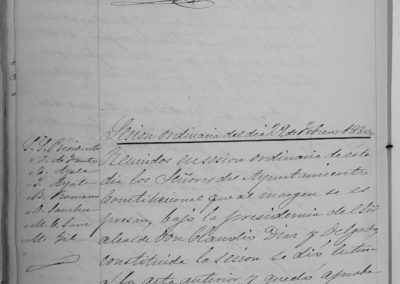 Sesion ordinaria del dia 22 de Febrero 1880
S. S. Presidente
Ayala
Ayala
B. Romano
D. Sanchez
M. G. Sanz
M. Gil
Reunidos en sesion ordinaria de este
dia, los Señores del Ayuntamiento
constitucional que al margen se es
presan, bajo la presidencia del Sor
alcalde Don Claudio Diaz y Delgado
constituida la sesion se dió lectura
a la acta anterior y quedó aproba